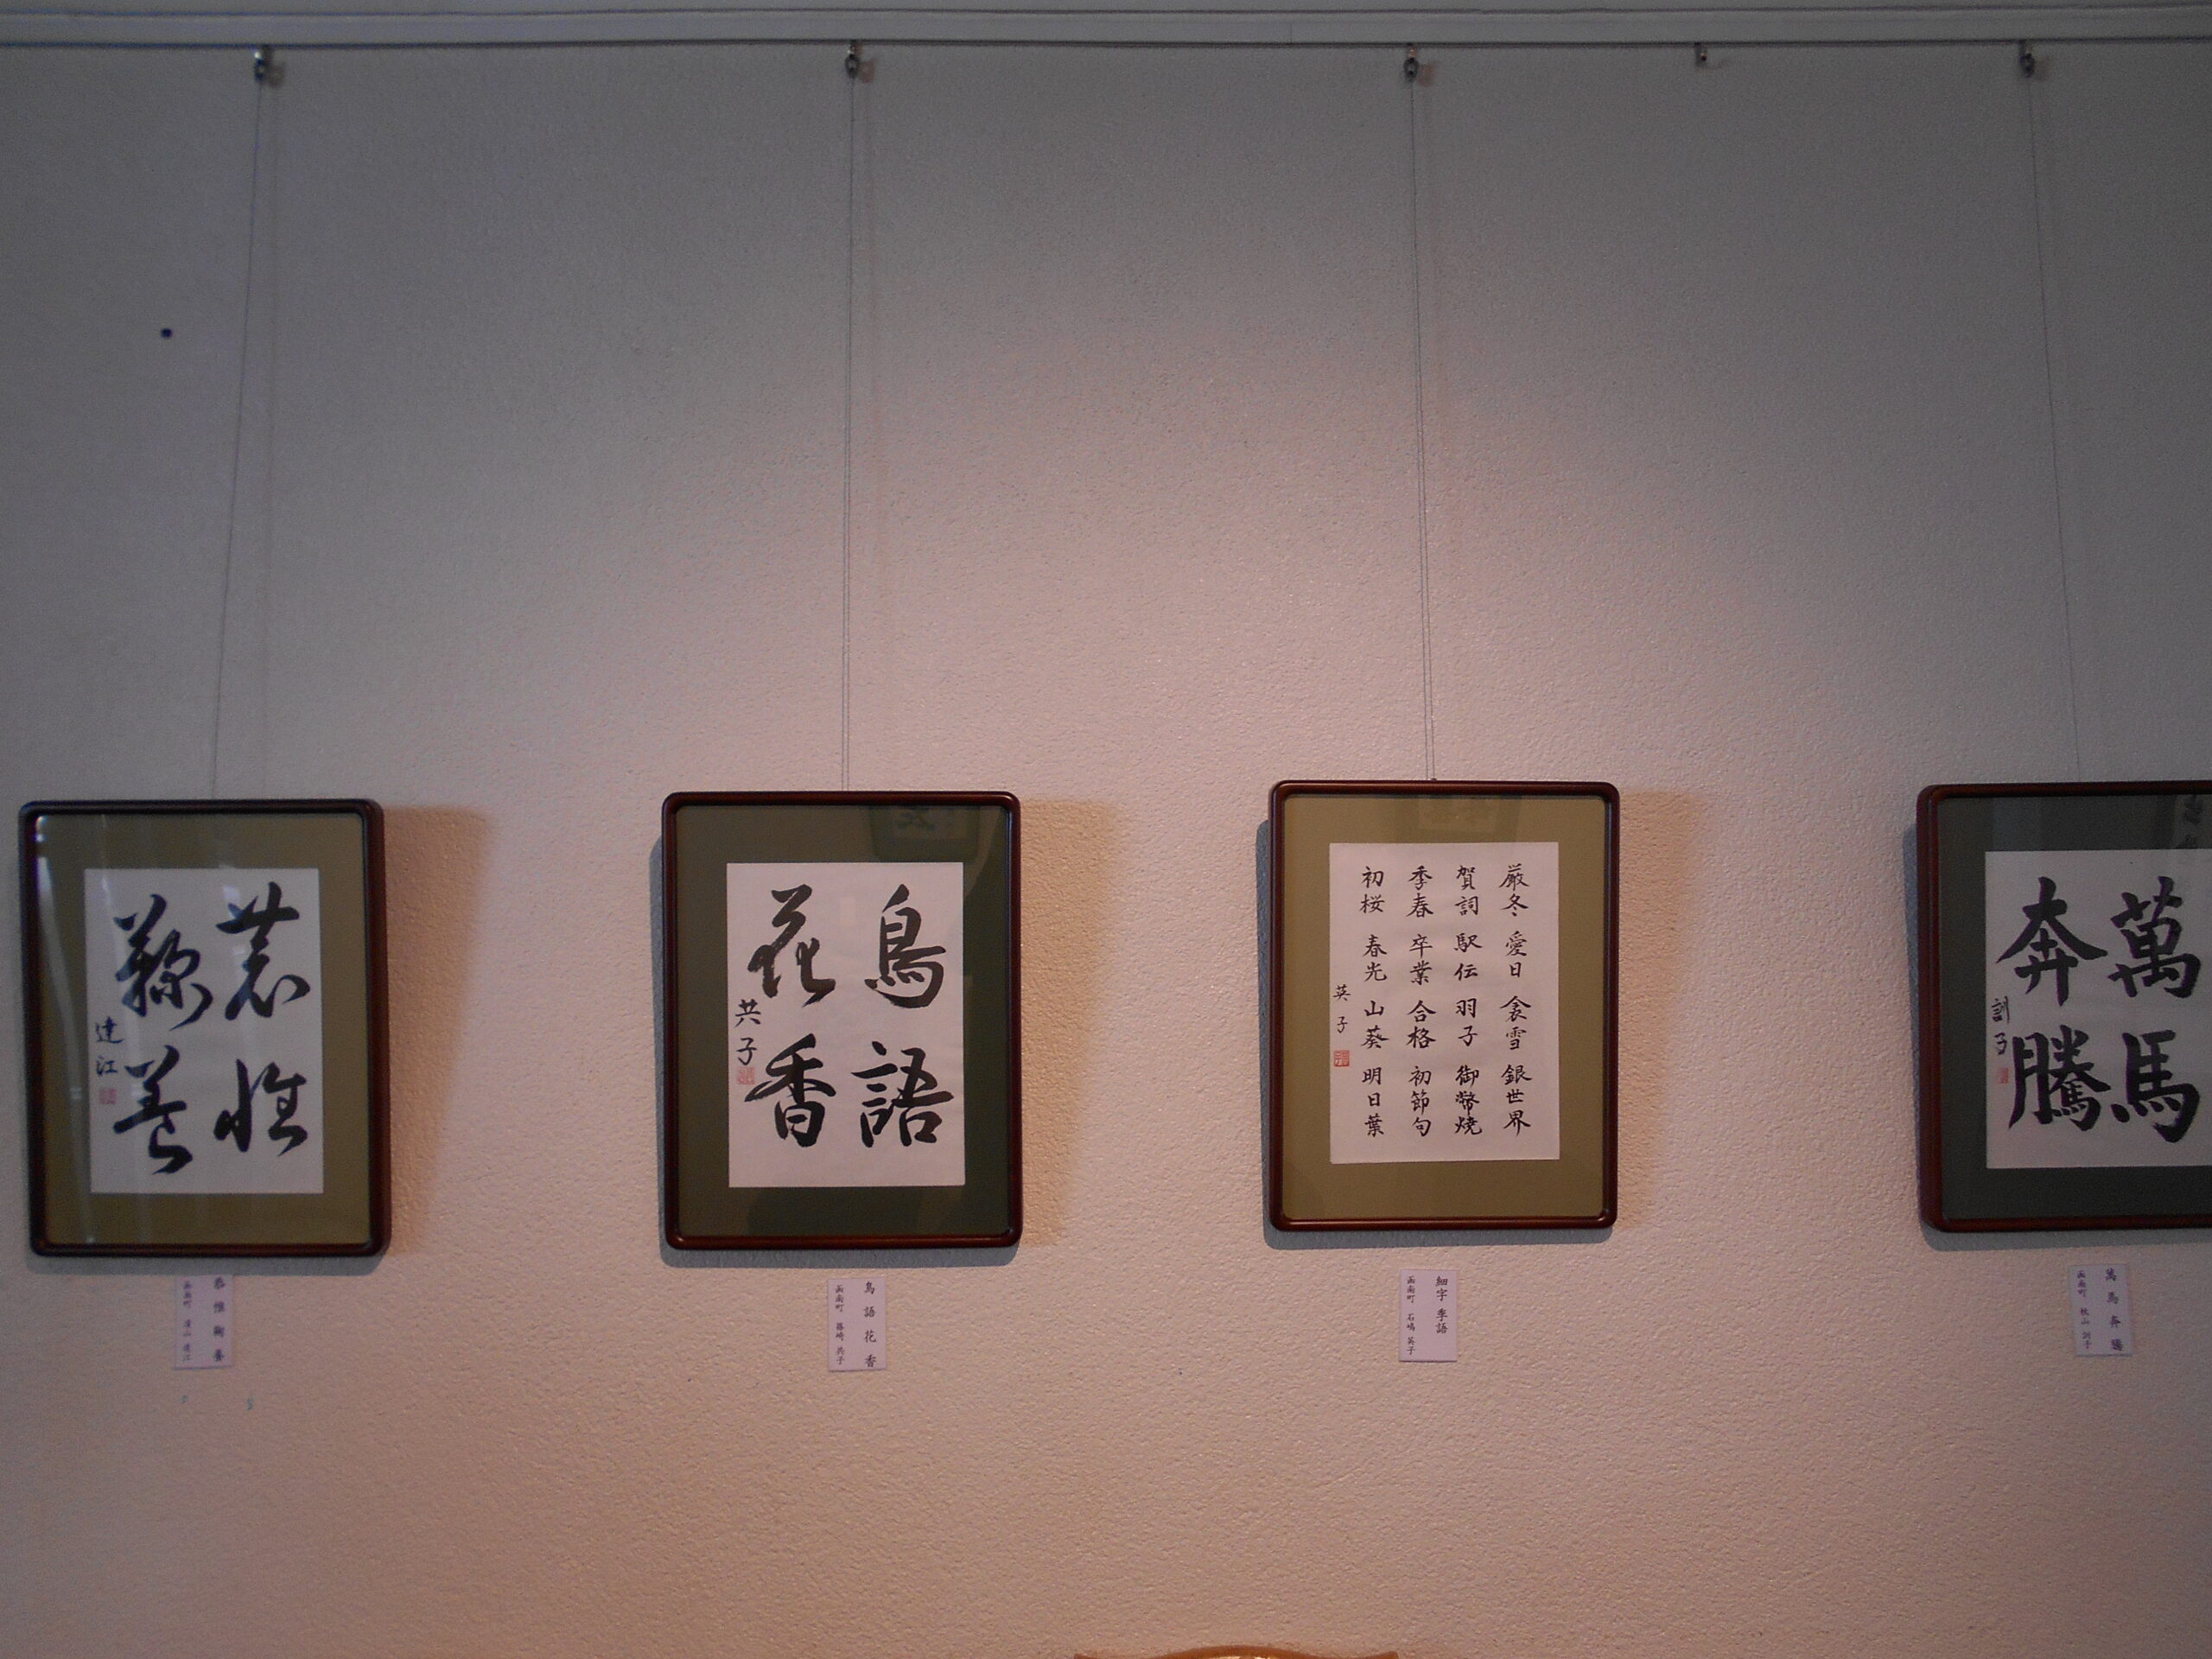 恭惟
鞠養
達江
恭惟鞠養
函南町
鳥語
花香
共子
鳥語花香
函南町 藤崎 共子
厳冬 愛日 衾雪 銀世界
賀詞 駅伝 羽子 御幣焼
季春 卒業 合格 初節句
初桜 春光 山葵 明日葉
英子
細字 季語
函南町 石嶋 英子
萬馬
奔騰
訓子
萬馬奔騰
函南町 秋山 訓子